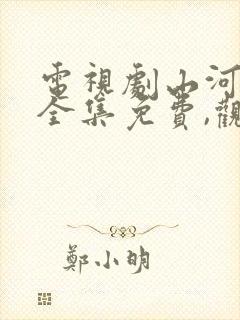 電視劇山河
全集免費,觀
鄭小明